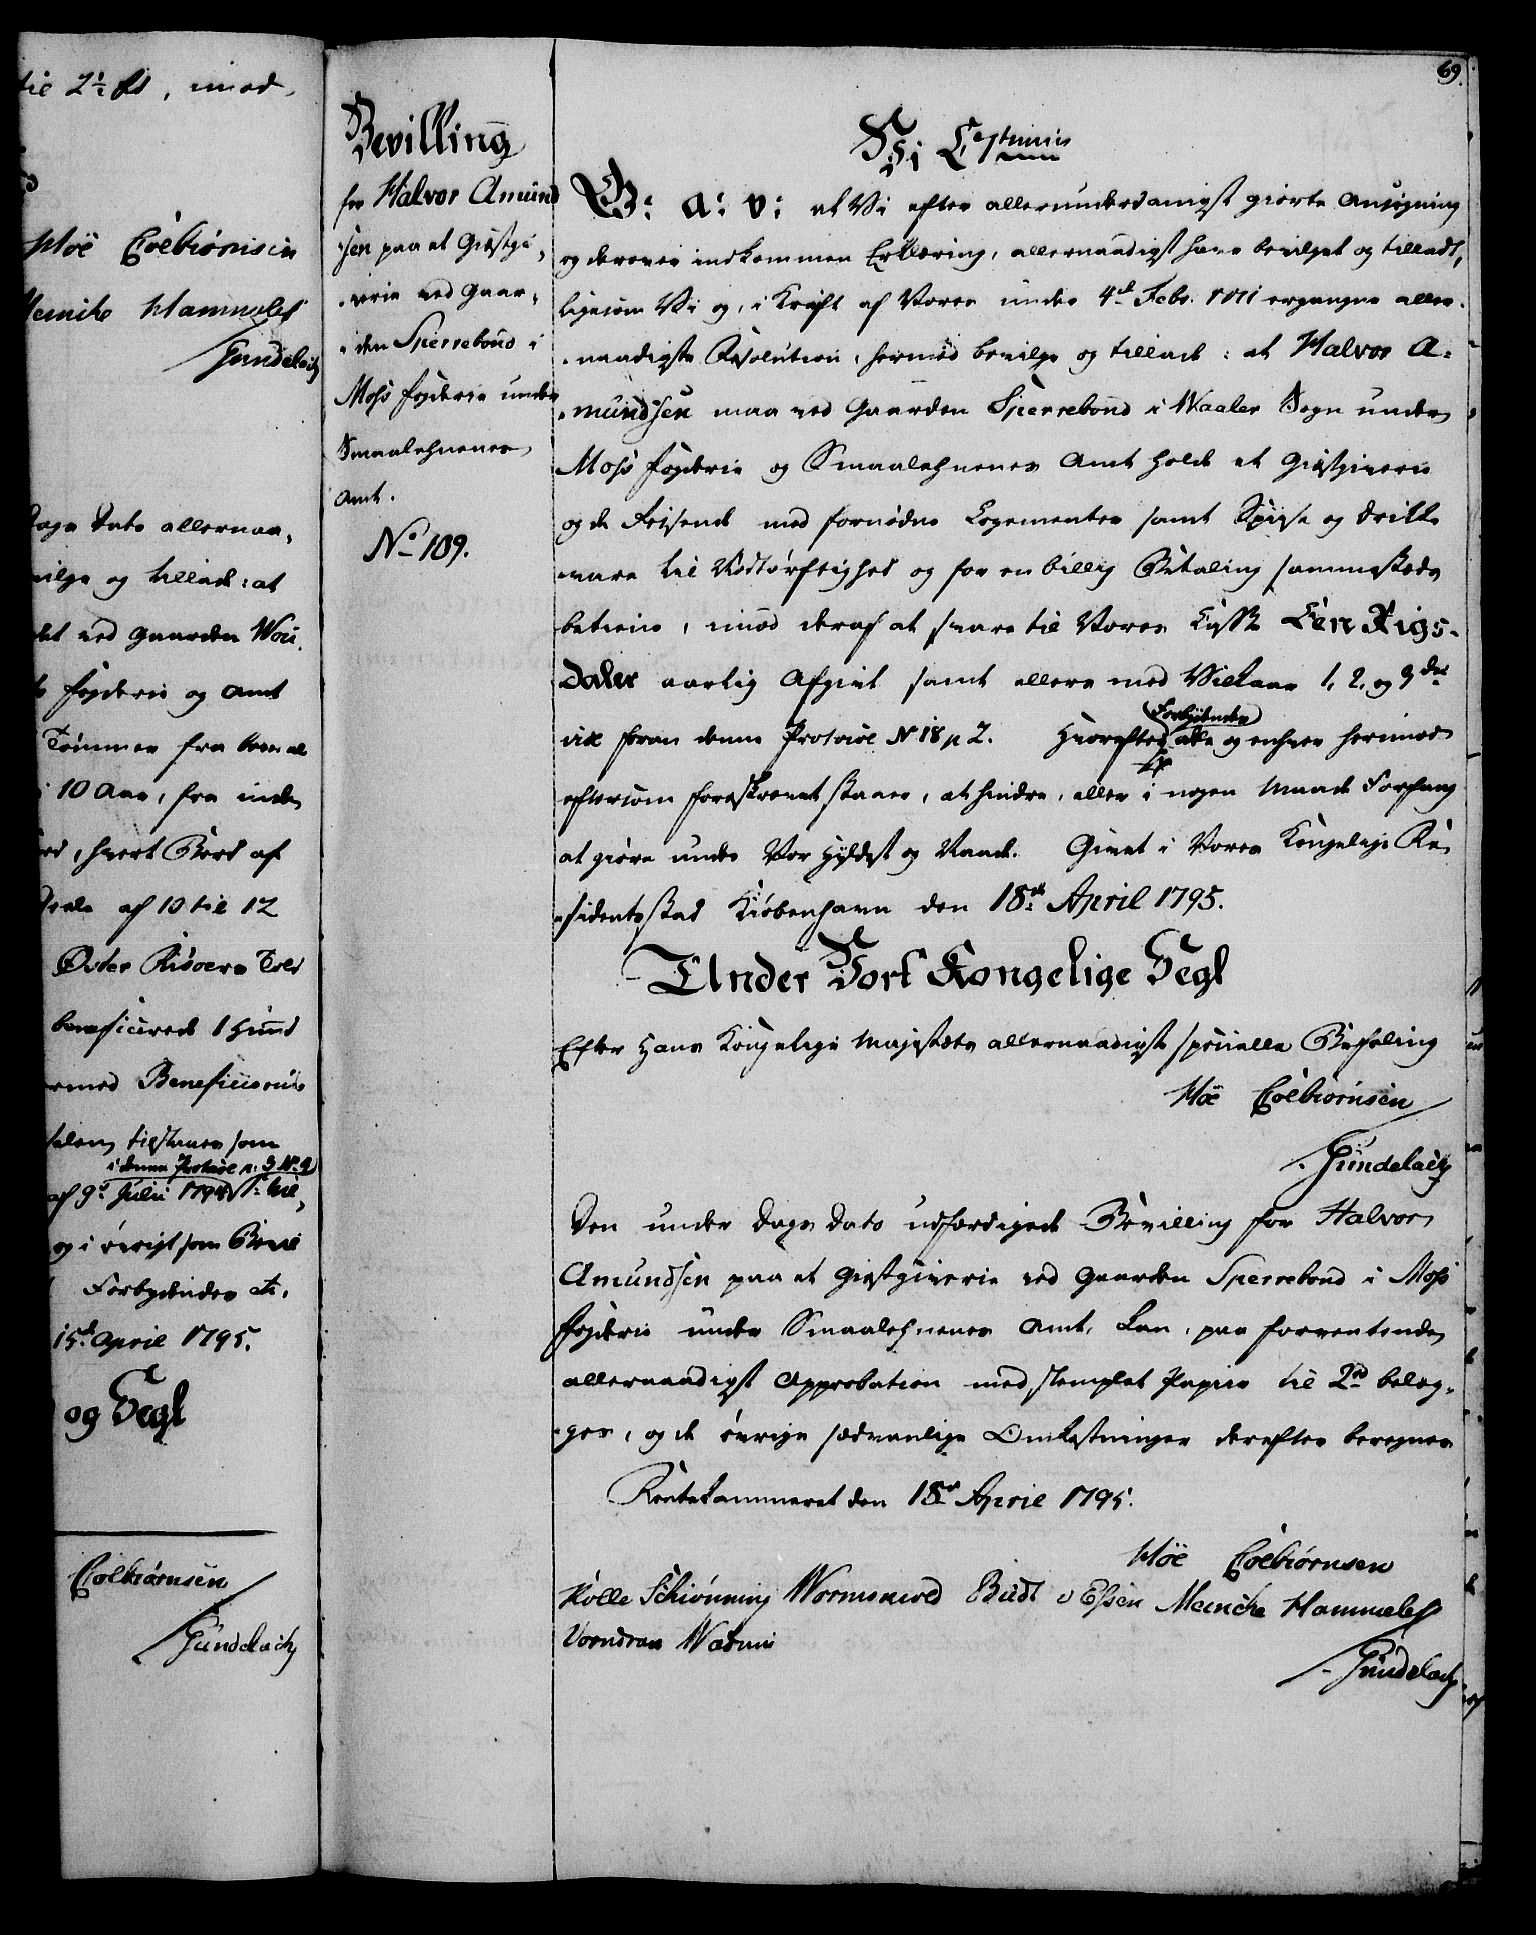 til 2½ ſs, imod
Høe Colbiörnsen
Meincke Hammeleff
Gundelach
Dags Dato allernaa,
vilge og tillade: at
ved Gaarden
Fogderie og Amt
Tömmer fra
i 10 Aar, fra inde
hvert Bord af
af 10 til 12
Öster Riisöers Told
beneficerede 1 Hund
Beneficerede
tilstaaes som
i denne Protocol p. 3 No 9
af 9de Julii 1794
og i övrigt som
Forbydendes etc.
15de April 1795.
og Segl
Colbiörnsen
Gundelach
Bevilling
for Halvor Amund
sen paa et Giæstgi,
verie ved Gaar,
den Sperrebond i
Moss Fogderie under
Smaalehnenes
Amt.
No 109.
69.
Vi Christian
G: A: V: at Vi efter allerunderdanigst giorte Ansögning
og derover indkommen Erklæring, allernaadigst have bevilget og tilladt,
ligesom Vi og, i Kraft af Vores under 4de Febr. 1771 ergangne aller,
naadigste Resolution, hermed bevilge og tillade: at Halvor A,
mundsen maa ved Gaarden Sperrebond i Waaler Sogn under
Moss Fogderie og Smaalehnenes Amt holde et Giæstgiverie
og de Reisende med fornödne Logementer samt Spise og Drikke
vare til Nödtörftighed og for en billig Betaling sammesteds
betiene, imod deraf at svare til Vores Casse Een Rigs-
daler aarlig Afgivt samt ellers med Vilkaar 1, 2, og 3de
vide foran denne Protocol No 18 p 2. Hvorefter alle og enhver herimod
Forbydendes
eftersom foreskrevet staaer, at hindre, eller i nogen Maade Forfang
at giöre under Vor Hyldest og Naade. Givet i Vores Kongelige Re,
sidentsstad Kiöbenhavn den 18de April 1795.
Under Vort Kongelige Segl
Efter Hans Kongelige Majestæts allernaadigste specielle Befaling
Höe Colbiörnsen
Gundelach
Den under Dags Dato udfærdigede Bevilling for Halvor
Amundsen paa et Giæstgiverie ved Gaarden Sperrebond i Moss
Fogderie under Smaalehnenes Amt, kan, paa forventende
allernaadigst Approbation med stemplet Papiir til 2rd belæg,
ges, og de övrige sædvanlige Omkostninger derefter beregnes
Rentekammeret den 18de April 1795.
Höe Colbiörnsen
Kölle Schiönning Wormskiold Budt v Essen Meincke Hammeleff
Vorndran Wadum
Gundelach